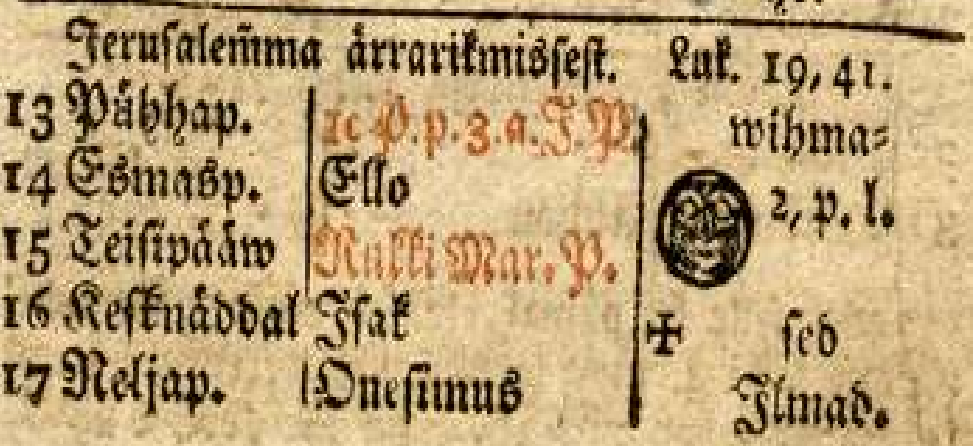 Jerusalem̄ma ärrarikmissest. Luk. 19, 41.
13 Pähhap. 10 P. p. 3. a. J. P. wihma-
14 Esmasp. Ello 2, p. l.
15 Teisipääw Rukki Mar. P.
16 Kesknäddal Isak ✠ sed
17 Neljap. Onesimus Ilmad.